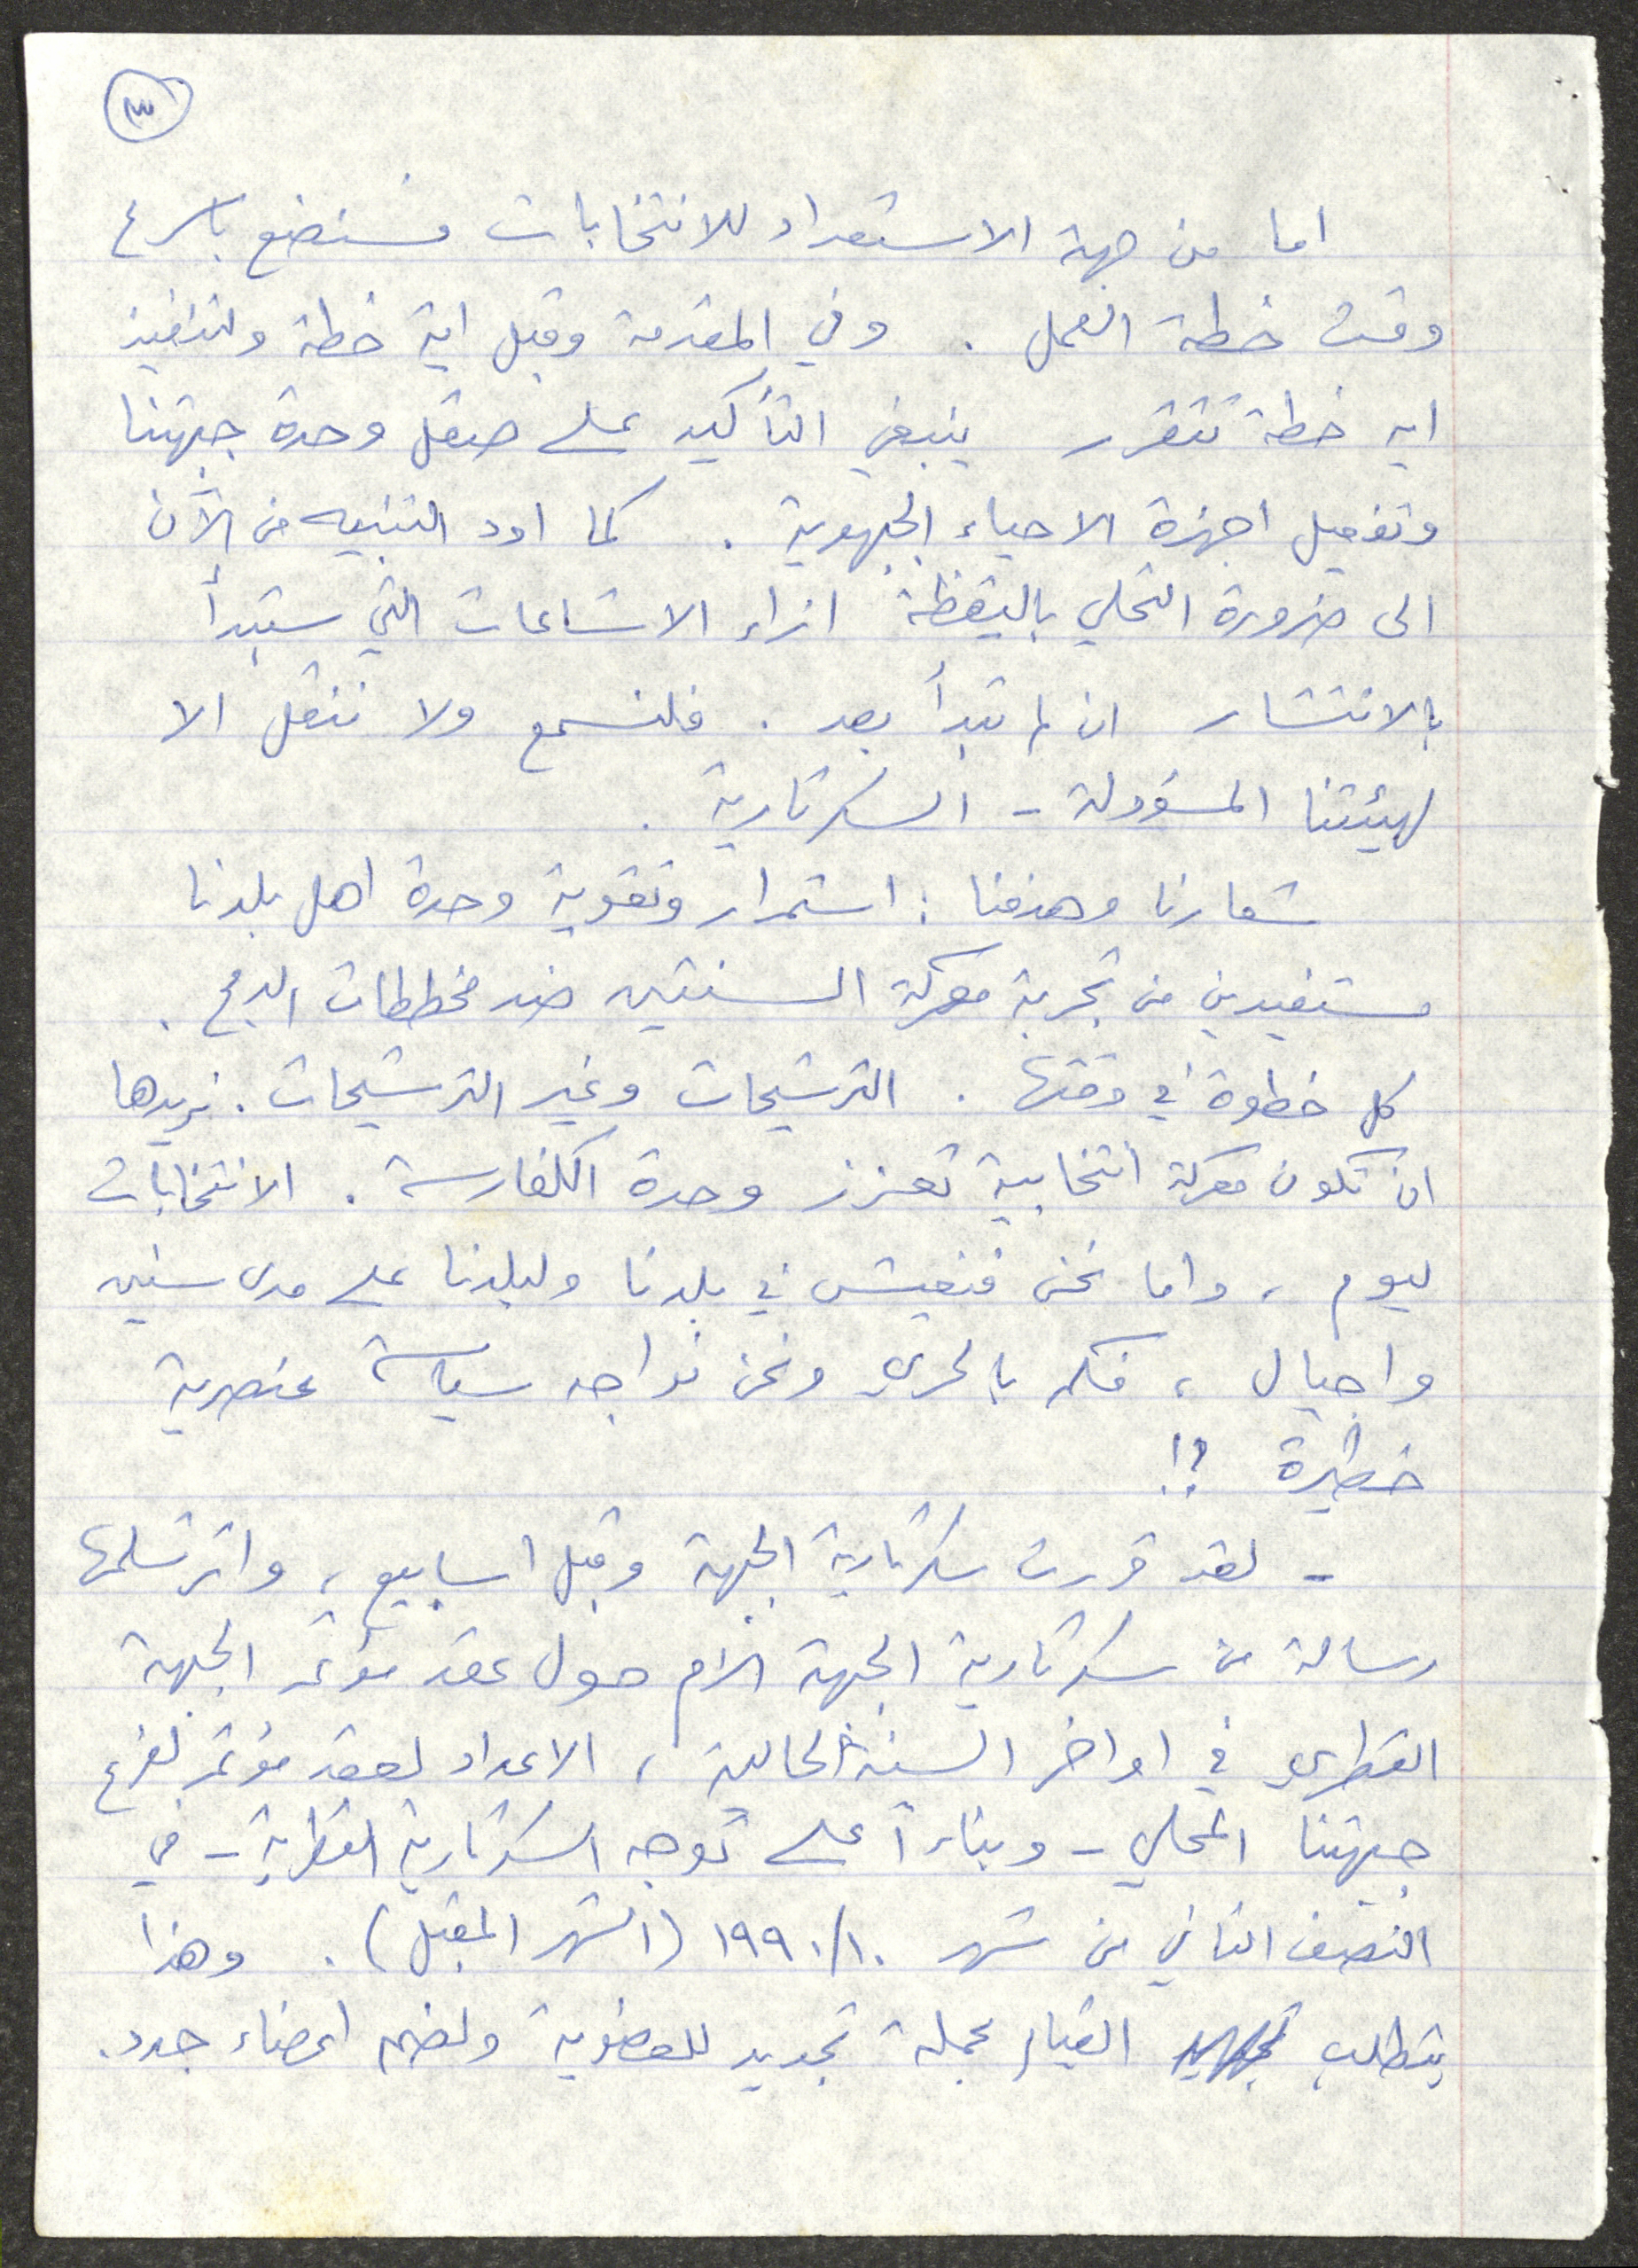 ٣
اما من جهة الاستعداد للانتخابات فسنضع باسرع
وقت خطة العمل . وفي المقدمة وقبل اية خطة ولتنفيذ
اية خطة تتقرر ينبغي التأكيد على صقل وحدة جبهتنا
وتفعيل اجهزة الاحياء الجبهوية . كما اود التنبيه من الآن
الى ضرورة التحلي باليقظة ازاء الاشاعات التي ستبدأ
بالانتشار ان لم تبدأ بعد . فلنسمع ولا ننقل الا
لهيئتنا المسؤولة - السكرتارية .
شعارنا وهدفنا : استمرار وتقوية وحدة اهل بلدنا
مستفيدين من تجربة معركة السنتين ضد مخططات الدمج .
كل خطوة في وقتها . الترشيحات وغير الترشيحات . نريدها
ان تكون معركة انتخابية تعزز وحدة الكفارسة . الانتخابات
ليوم ، واما نحن فنعيش في بلدنا ولبلدنا على مدى سنين
واجيال ، فكم بالحري ونحن نواجه سياسة عنصرية
خطيرة ؟!
- لقد قررت سكرتارية الجبهة وقبل اسابيع ، واثر تسلمها
رسالة من سكرتارية الجبهة الام حول عقد مؤتمر الجبهة
القطري في اواخر السنة الحالية ، الاعداد لعقد مؤتمر لفرع
جبهتنا المحلي - وبناءاً على توجه السكرتارية القطرية - في
النصف الثاني من شهر ١٩٩٠/١٠ (الشهر المقبل) . وهذا
يتطلب القيام بحملة تجديد للعضوية ولضم اعضاء جدد .